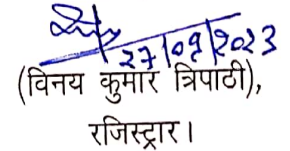 27/09/2023
(विनय कुमार त्रिपाठी),
रजिस्ट्रार।